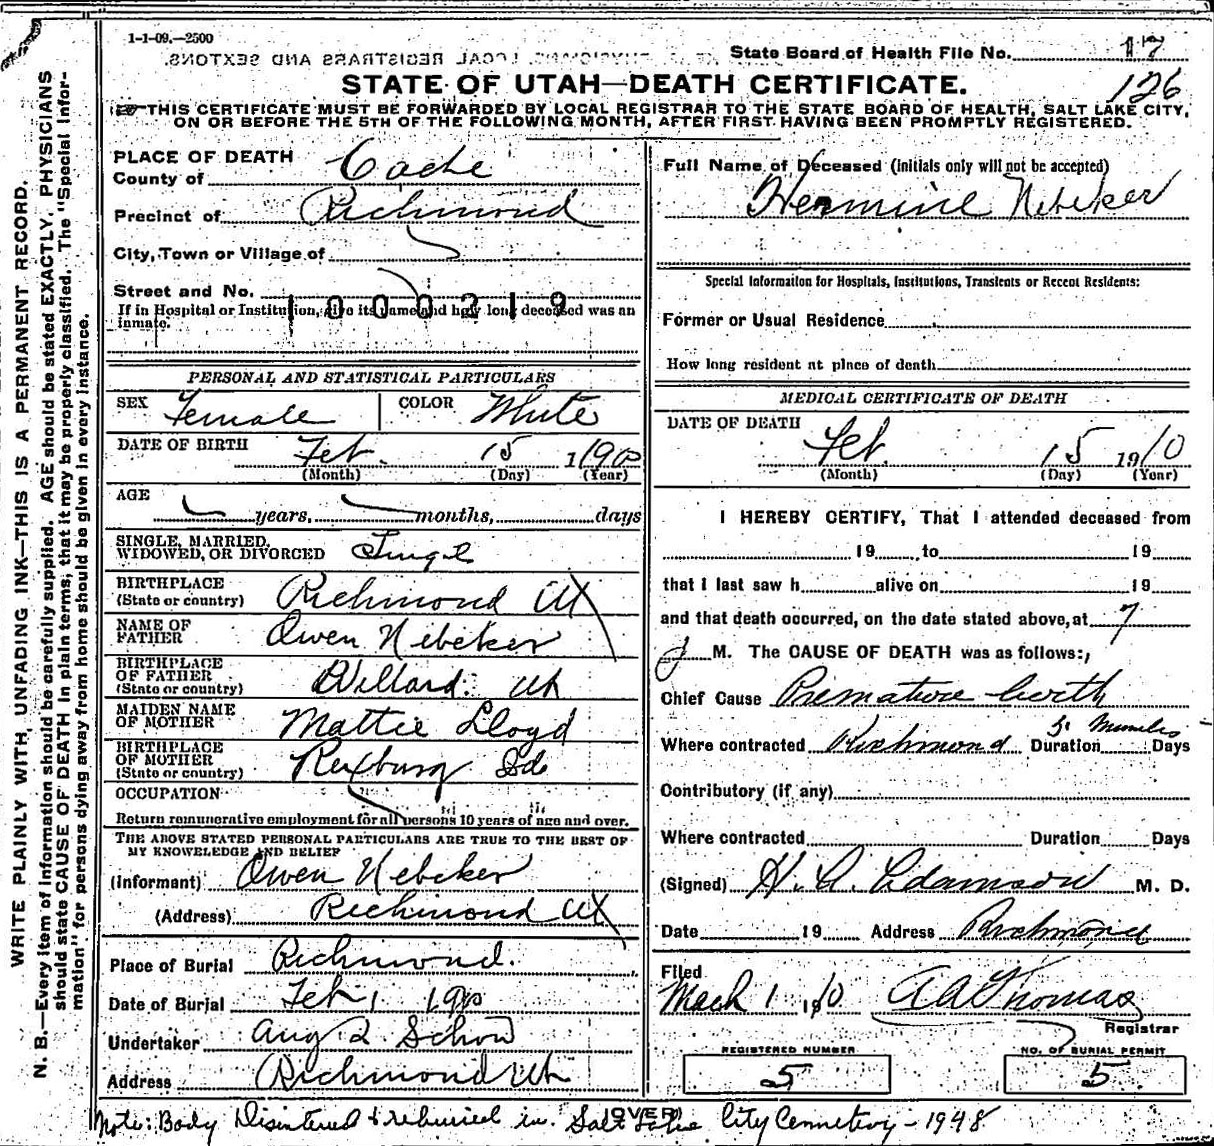 1-1-09.—2500
LOCAL REGISTRARS AND SEXTONS.
State Board of Health File No. 17
126
STATE OF UTAH—DEATH CERTIFICATE.
THIS CERTIFICATE MUST BE FORWARDED BY LOCAL REGISTRAR TO THE STATE BOARD OF HEALTH, SALT LAKE CITY,
ON OR BEFORE THE 5TH OF THE FOLLOWING MONTH, AFTER FIRST HAVING BEEN PROMPTLY REGISTERED.
WRITE PLAINLY WITH UNFADING INK—THIS IS A PERMANENT RECORD.
N. B.—Every item of information should be carefully supplied. AGE should be stated EXACTLY. PHYSICIANS
should state CAUSE OF DEATH in plain terms, that it may be properly classified. The "Special Infor-
mation" for persons dying away from home should be given in every instance.
PLACE OF DEATH
County of Cache
Precinct of Richmond
City, Town or Village of
Street and No.
1000219
If in Hospital or Institution, give its name and how long deceased was an
inmate.
PERSONAL AND STATISTICAL PARTICULARS
SEX Female COLOR White
DATE OF BIRTH Feb. 15 1900
(Month) (Day) (Year)
AGE
years, months, days
SINGLE, MARRIED,
WIDOWED, OR DIVORCED Single
BIRTHPLACE
(State or country) Richmond Ut
NAME OF
FATHER Owen Nebeker
BIRTHPLACE
OF FATHER
(State or country) Willard. Ut
MAIDEN NAME
OF MOTHER Mattie Lloyd
BIRTHPLACE
OF MOTHER
(State or country) Rexburg Ida
OCCUPATION
Return remunerative employment for all persons 10 years of age and over.
THE ABOVE STATED PERSONAL PARTICULARS ARE TRUE TO THE BEST OF
MY KNOWELEDGE AND BELIEF
(Informant) Owen Nebeker
(Address) Richmond Ut
Place of Burial Richmond.
Date of Burial Feb 1 1910
Undertaker Aug Schow
Address Richmond Ut
Full Name of Deceased (initials only will not be accepted)
Hermine Nebeker
Special Information for Hospitals, Institutions, Transients or Recent Residents:
Former or Usual Residence
How long resident at place of death
MEDICAL CERTIFICATE OF DEATH
DATE OF DEATH
Feb 15 1910
(Month) (Day) (Year)
I HEREBY CERTIFY, That I attended deceased from
19 to 19
that I last saw h alive on 19
and that death occurred, on the date stated above, at 7
M. The CAUSE OF DEATH was as follows:
Chief Cause Premature birth
Where contracted Richmond Duration Minutes Days
Contributory (if any)
Where contracted Duration Days
(Signed) H. A. Adamson M. D.
Date 19 Address Richmond
Filed
Mach 1 1910 A A Thomas
Registrar
REGISTERED NUMBER
5
NO. OF BURIAL PERMIT
5
(OVER)
Note: Body Disintered & reburied in Salt Lake City Cemetery - 1948